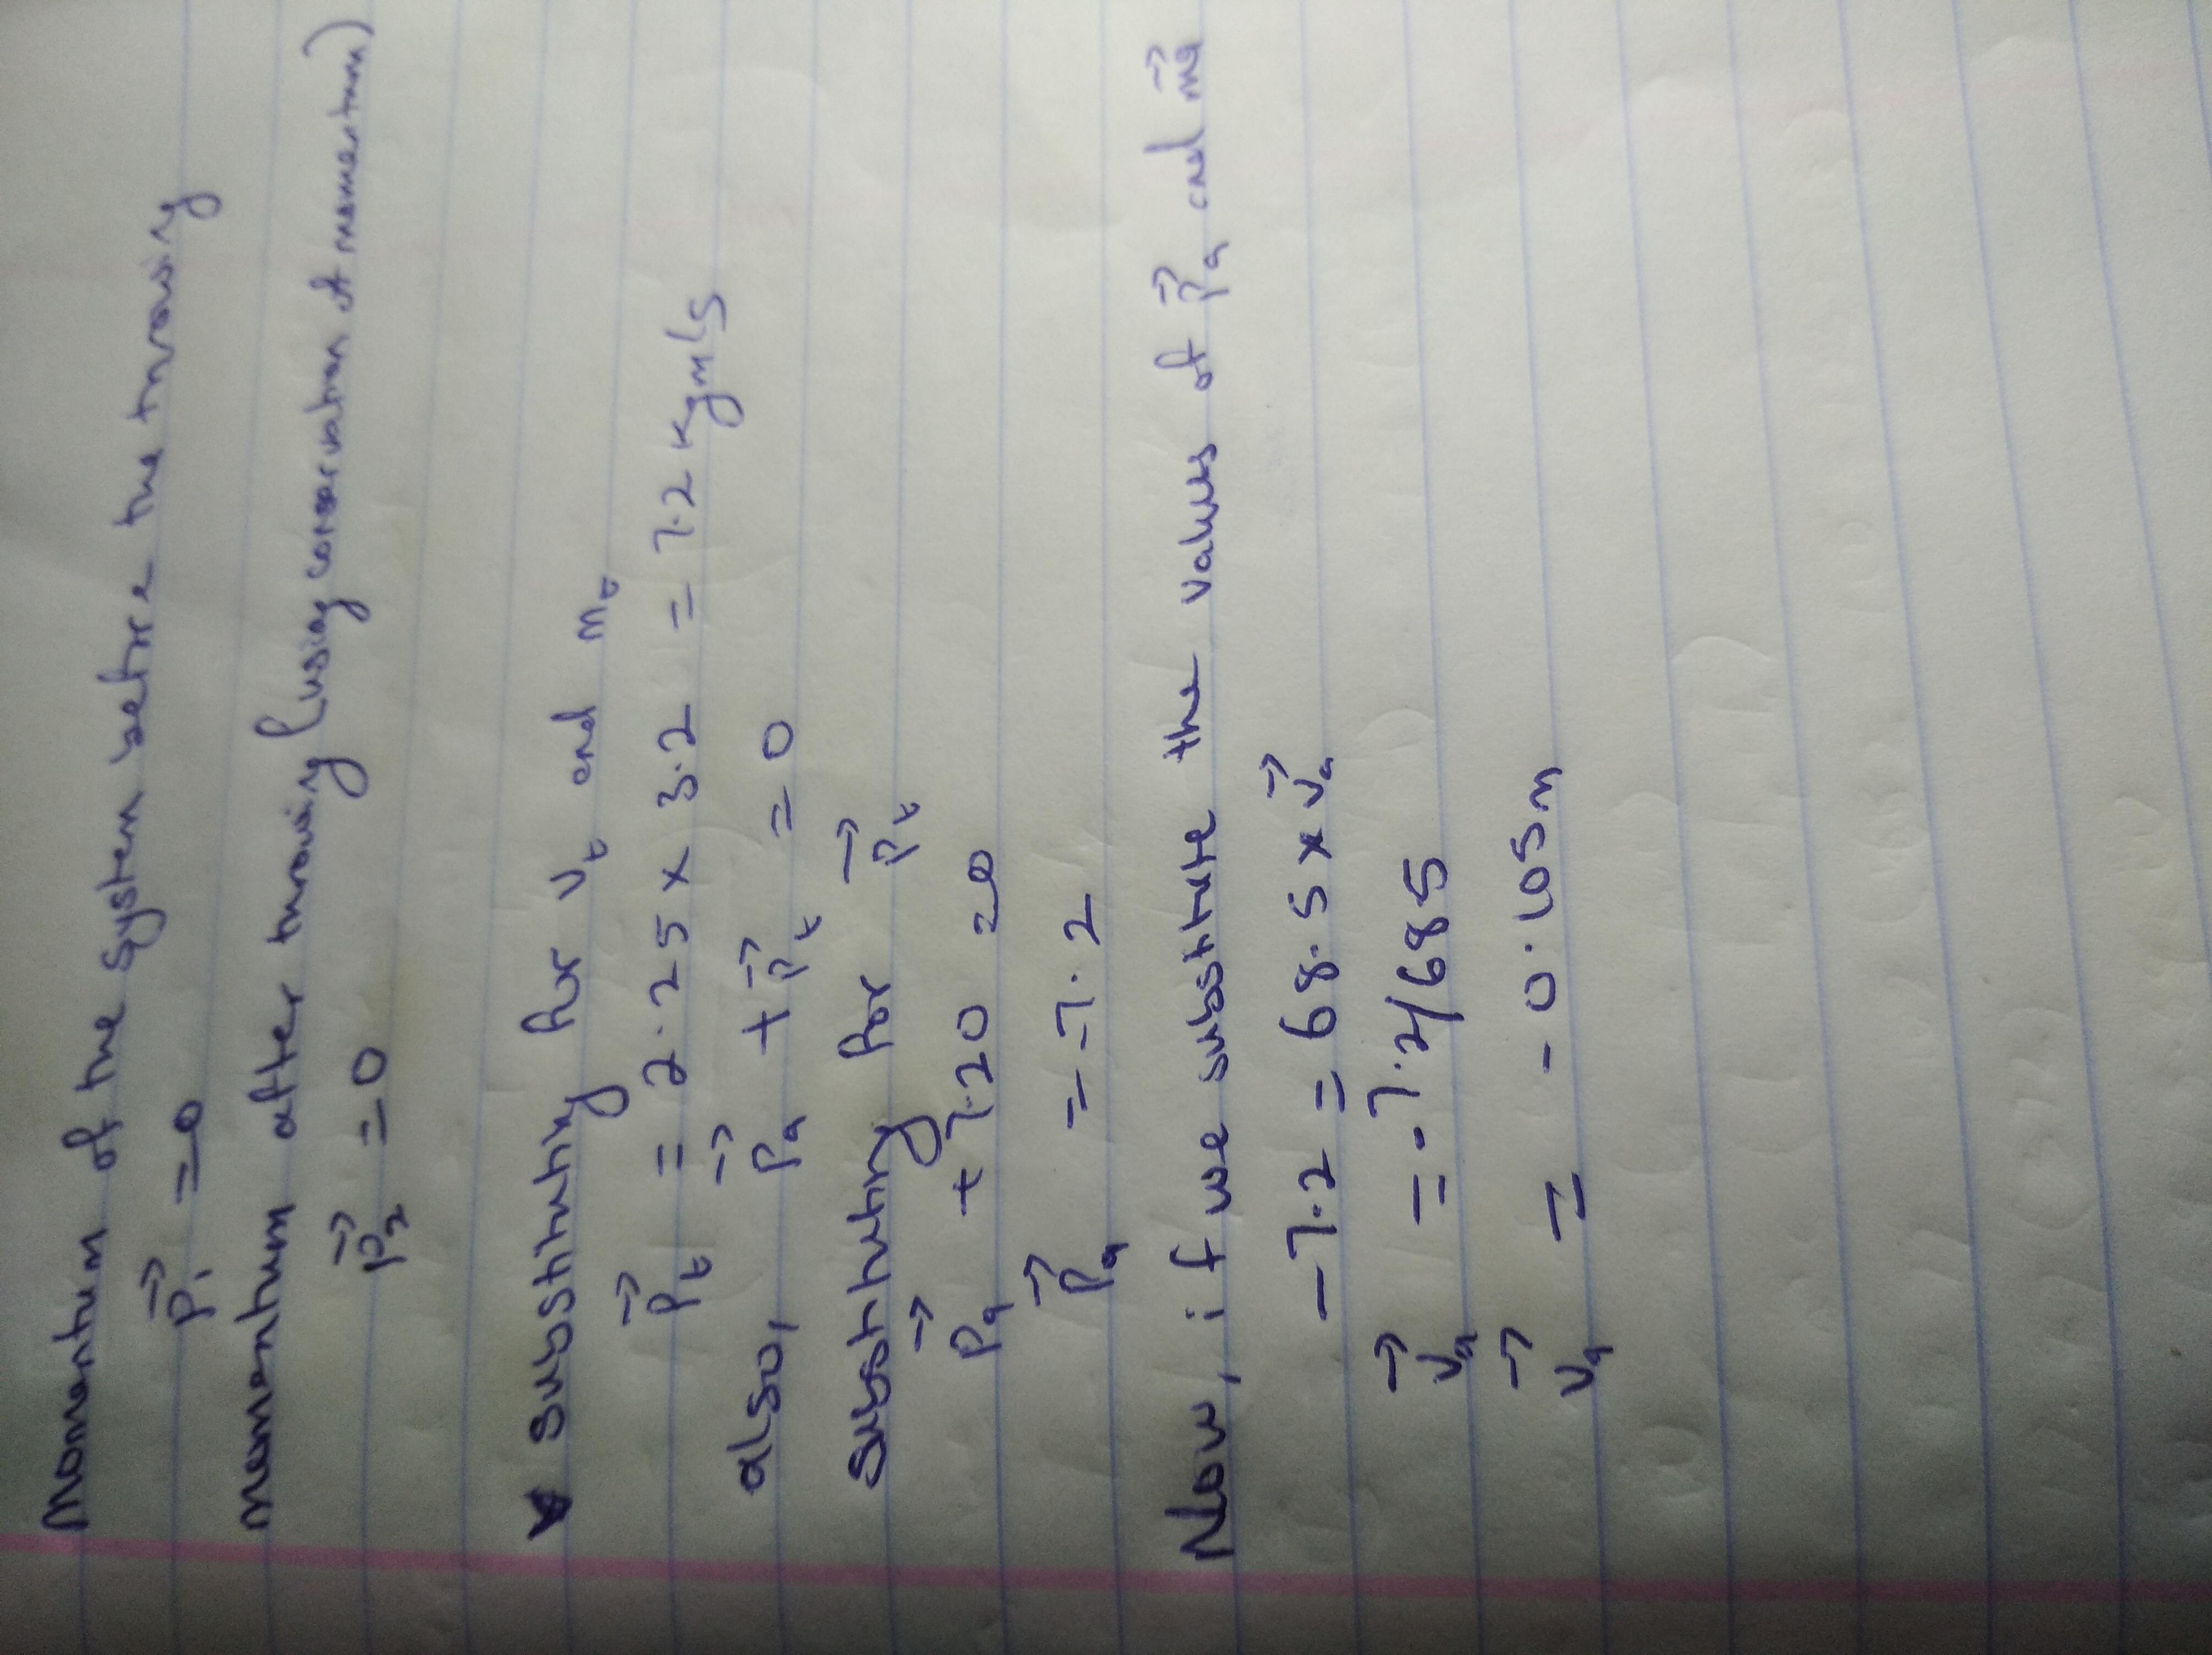 Momentum of the system before the throwing
P⃗₁ = 0
momentum after throwing (using conservation of momentum)
P⃗₂ = 0
substituting for Vₜ and mₜ
P⃗ₜ = 2.25 × 3.2 = 7.2 Kgm/s
also, P⃗ₐ + P⃗ₜ = 0
substituting for P⃗ₜ
P⃗ₐ + 7.20 = 0
P⃗ₐ = -7.2
Now, if we substitute the values of P⃗ₐ and m⃗ₐ
-7.2 = 68.5 × V⃗ₐ
V⃗ₐ = -7.2/685
V⃗ₐ = -0.105m